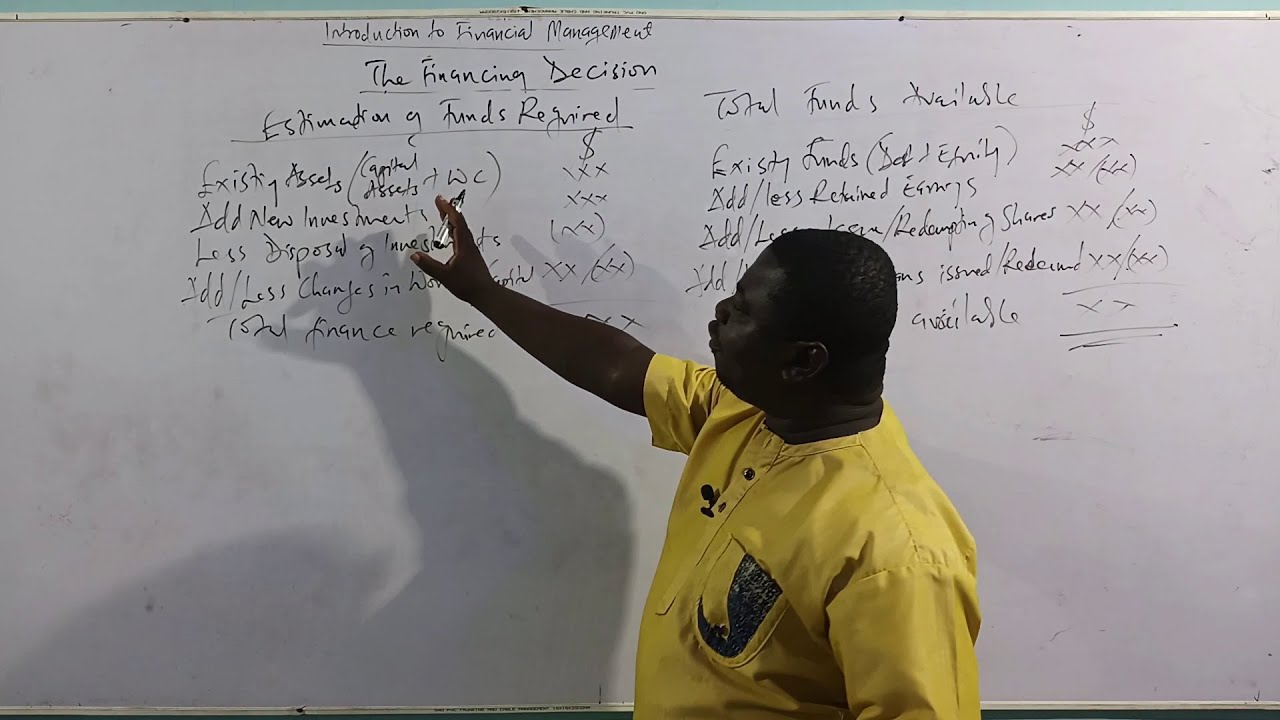 Introduction to Financial Management
The Financing Decision
Estimation of Funds Required
$
Existing Assets (Capital Assets + WC) xxx
Add New Investments xxx
Less Disposal of Investments (xx)
Add/Less Changes in Capital xx/(xx)
Total finance required
Total Funds Available
$
Existing Funds (Debt + Equity) xxx
Add/Less Retained Earnings xx/(xx)
Add/Less Issue/Redemption of Shares xx/(xx)
Add/ issued/Redeemed xx/(xx)
available xx